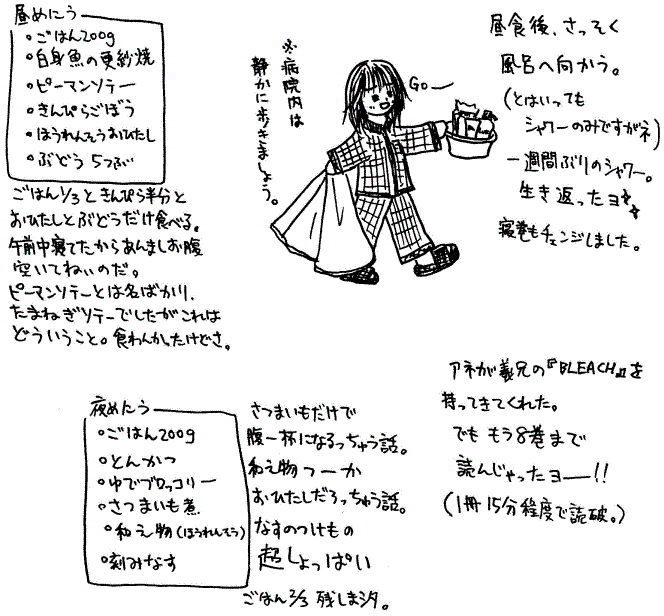 昼めにう
・ごはん200g
・白身魚の更紗焼
・ピーマンソテー
・きんぴらごぼう
・ほうれんそうおひたし
・ぶどう 5つぶ
ごはん1/3ときんぴら半分と
おひたしとぶどうだけ食べる。
午前中寝てたからあんましお腹
空いてねいのだ。
ピーマンソテーとは名ばかり、
たまねぎソテーでしたがこれは
どういうこと。食わんかったけどさ。
※病院内は
静かに歩きましょう。
Go—
昼食後、さっそく
風呂へ向かう。
(とはいっても
シャワーのみですがネ)
一週間ぶりのシャワー。
生き返ったヨ
寝巻もチェンジしました。
アネが義兄の『BLEACH』を
持ってきてくれた。
でも もう8巻まで
読んじゃったヨ—!!
(1冊15分程度で読破。)
夜めにう
・ごはん200g
・とんかつ
・ゆでブロッコリー
・さつまいも煮
・和え物(ほうれんそう)
・刻みなす
さつまいもだけで
腹一杯になるっちゅう話。
和え物つーか
おひたしだろっちゅう話。
なすのつけもの
超しょっぱい
ごはん2/3 残しまシタ。